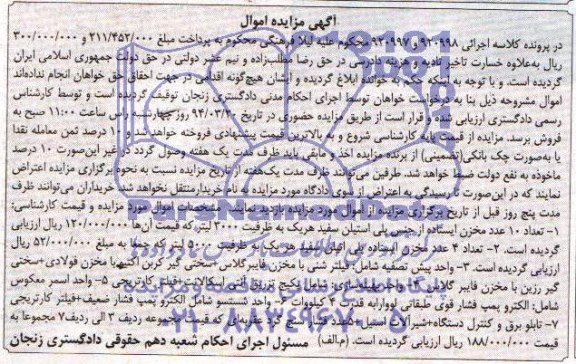 آگهی مزایده اموال
در پرونده کلاسه اجرائی ۹۲۰۹۹۸ و ۹۲۰۹۹۷ محکوم علیه لیلا فرهنگی محکوم به پرداخت مبلغ ۲۱۱/۴۵۲/۰۰۰ و ۳۰۰/۰۰۰/۰۰۰
ریال به‌علاوه خسارت تاخیر تادیه و هزینه دادرسی در حق رضا مطلب‌زاده و نیم عشر دولتی در حق دولت جمهوری اسلامی ایران
گردیده است. و با توجه به اینکه حکم به خوانده ابلاغ گردیده و ایشان هیچ‌گونه اقدامی در جهت احقاق حق خواهان انجام نداده‌اند
اموال مشروحه ذیل بنا به درخواست خواهان توسط اجرای احکام مدنی دادگستری زنجان توقیف گردیده است و توسط کارشناس
رسمی دادگستری ارزیابی شده و قرار است از طریق مزایده حضوری در تاریخ ۹۴/۰۳/۲۰ روز چهارشنبه راس ساعت ۱۱:۰۰ صبح به
فروش برسد. مزایده از قیمت پایه کارشناسی شروع و به بالاترین قیمت پیشنهادی فروخته خواهد شد و ۱۰ درصد ثمن معامله نقدا
یا به‌صورت چک بانکی(تضمینی) از برنده مزایده اخذ و مابقی باید ظرف مدت یک هفته وصول گردد در غیر این‌صورت ۱۰ درصد
ماخوذه به نفع دولت ضبط خواهد شد. طرفین می‌توانند ظرف مدت یک‌هفته از تاریخ مزایده نسبت به نحوه برگزاری مزایده اعتراض
نمایند که در این‌صورت تا رسیدگی به اعتراض از سوی دادگاه مورد مزایده به نام خریدار منتقل نخواهد شد. خریداران می‌توانند ظرف
مدت پنج روز قبل از تاریخ برگزاری مزایده از اموال مورد مزایده بازدید نمایند. مشخصات اموال مورد مزایده و قیمت کارشناسی:
۱- تعداد ۱۰ عدد مخزن ایستاده از جنس پلی اتیلن سفید هر یک به ظرفیت ۳۰۰۰ لیتر، که قیمت آن‌ها ۱۲۰/۰۰۰/۰۰۰ ریال ارزیابی
گردیده است. ۲- تعداد ۴ عدد مخزن ایستاده پلی اتیلن سفید هر یک به ظرفیت ۵۰۰۰ لیتر که جمعا به مبلغ ۵۲/۰۰۰/۰۰۰ ریال
ارزیابی گردیده است. ۳- واحد پیش تصفیه شامل: فیلتر شنی با مخزن فایبر گلاس+سختی گیر کربن اکتیو با مخزن فولادی+سختی
گیر رزین با مخزن فایبر گلاس ۴- واحد شامل: پکیج تزریق آنتی اسکالانت+فیلتر کارتریجی ۵- واحد اسمز معکوس
شامل: الکترو پمپ فشار قوی طبقاتی لووارابه قدرت ۴ کیلووات ۶- واحد شستشو شامل الکترو پمپ فشار ضعیف+فیلتر کارتریجی
۷- تابلو برق و کنترل دستگاه+شیرآلات استیل که قیمت مجموعه ردیف ۳ الی ردیف ۷ مجموعا به
قیمت ۱۸۸/۰۰۰/۰۰۰ ریال ارزیابی گردیده است. (م.الف) مسئول اجرای احکام شعبه دهم حقوقی دادگستری زنجان
ParsNamadData
۰۲۱-۸۸۳۴۹۶۷۰-۵